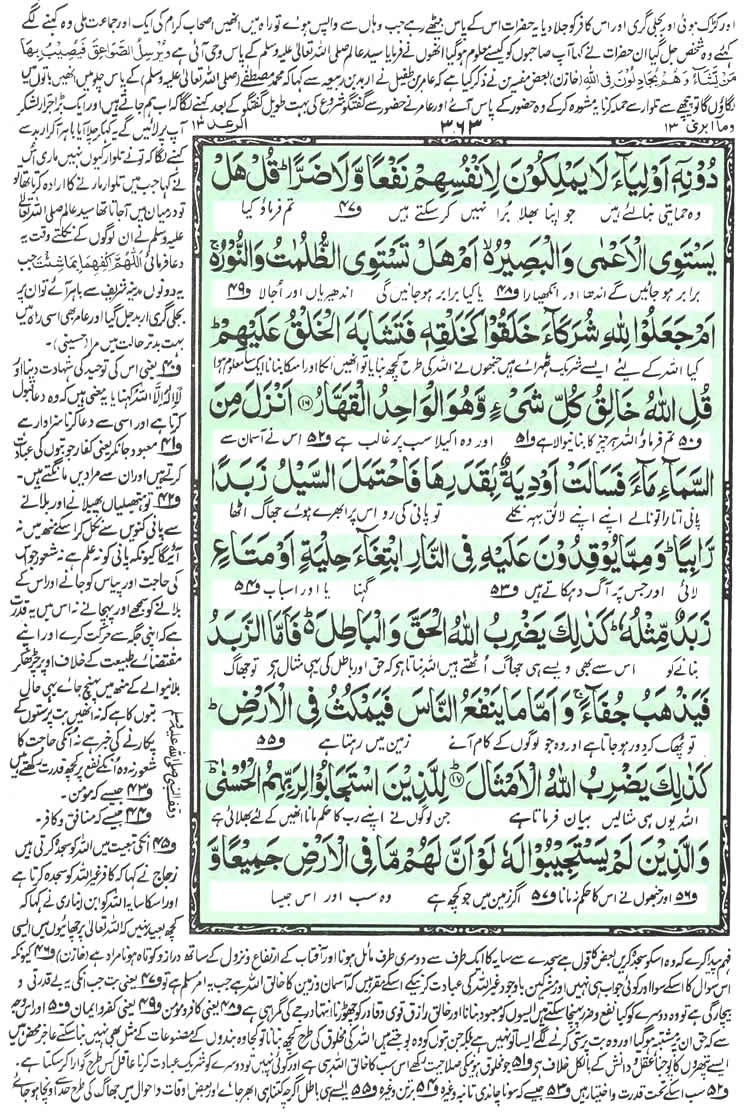 اور کڑک ہوئی اور بجلی گری اور اس کافر کو جلا دیا یہ حضرات اس کے پاس بیٹھے رہے جب وہاں سے واپس ہوئے تو راہ میں انھیں اصحاب کرام کی ایک اور جماعت ملی وہ کہنے لگے
کہئے وہ شخص جل گیا ان حضرات نے کہا آپ صاحبوں کو کیسے معلوم ہوگیا انھوں نے فرمایا سید عالم صلی اللہ تعالیٰ علیہ وسلم کے پاس وحی آئی ہے وَیُرْسِلُ الصَّوَاعِقَ فَیُصِیْبُ بِهَا
مَنْ یَّشَآءُ وَهُمْ یُجَادِلُوْنَ فِی اللهِ (خازن) بعض مفسرین نے ذکر کیا ہے کہ عامر بن طفیل نے اربد بن ربیعہ سے کہا کہ محمد مصطفےٰ (صلی اللہ تعالیٰ علیہ وسلم) کے پاس چلو میں انھیں باتوں میں
لگاؤں گا تو پیچھے سے تلوار سے حملہ کرنا یہ مشورہ کرکے وہ حضور کے پاس آئے اور عامر نے حضور سے گفتگو شروع کی بہت طویل گفتگو کے بعد کہنے لگا کہ اب ہم جاتے ہیں اور ایک بڑا جرار لشکر
وما ابری ۱۳
۳۶۳
الرعد ۱۳
دُوْنِهٖۤ اَوْلِیَآءَ لَا یَمْلِكُوْنَ لِاَنْفُسِهِمْ نَفْعًا وَّلَا ضَرًّاؕ قُلْ هَلْ
وہ حمایتی بنالئے ہیں جو اپنا بھلا برا نہیں کرسکتے ہیں ف۴۷ تم فرماؤ کیا
یَسْتَوِی الْاَعْمٰى وَالْبَصِیْرُ ۙ اَمْ هَلْ تَسْتَوِی الظُّلُمٰتُ وَالنُّوْرُ ۚ
برابر ہوجائیں گے اندھا اور انکھیارا ف۴۸ یا کیا برابر ہوجائیں گی اندھیریاں اور اجالا ف۴۹
اَمْ جَعَلُوْا لِلّٰهِ شُرَكَآءَ خَلَقُوْا كَخَلْقِهٖ فَتَشَابَهَ الْخَلْقُ عَلَیْهِمْؕ
کیا اللہ کے لیئے ایسے شریک ٹھہرائے ہیں جنھوں نے اللہ کی طرح کچھ بنایا تو انھیں انکا اور اسکا بنانا ایک سا معلوم ہوا
قُلِ اللّٰهُ خَالِقُ كُلِّ شَیْءٍ وَّهُوَ الْوَاحِدُ الْقَهَّارُ ۝۱۶ اَنْزَلَ مِنَ
ف۵۰ تم فرماؤ اللہ ہر چیز کا بنانیوالا ہے ف۵۱ اور وہ اکیلا سب پر غالب ہے ف۵۲ اس نے آسمان سے
السَّمَآءِ مَآءً فَسَالَتْ اَوْدِیَةٌۢ بِقَدَرِهَا فَاحْتَمَلَ السَّیْلُ زَبَدًا
پانی اتارا تو نالے اپنے اپنے لائق بہہ نکلے تو پانی کی رو اس پر ابھرے ہوئے جھاگ اٹھا
رَّابِیًاؕ وَمِمَّا یُوْقِدُوْنَ عَلَیْهِ فِی النَّارِ ابْتِغَآءَ حِلْیَةٍ اَوْ مَتَاعٍ
لائی اور جس پر آگ دہکاتے ہیں ف۵۳ گہنا یا اور اسباب ف۵۴
زَبَدٌ مِّثْلُهٗؕ كَذٰلِكَ یَضْرِبُ اللّٰهُ الْحَقَّ وَالْبَاطِلَ ؕ فَاَمَّا الزَّبَدُ
بنانے کو اس سے بھی ویسے ہی جھاگ اٹھتے ہیں اللہ بتاتا ہے کہ حق اور باطل کی یہی مثال ہے تو جھاگ
فَیَذْهَبُ جُفَآءً ۚ وَاَمَّا مَا یَنْفَعُ النَّاسَ فَیَمْكُثُ فِی الْاَرْضِ ؕ
تو پھک کر دور ہوجاتا ہے اور وہ جو لوگوں کے کام آئے زمین میں رہتا ہے ف۵۵
كَذٰلِكَ یَضْرِبُ اللّٰهُ الْاَمْثَالَ ۝۱۷ لِلَّذِیْنَ اسْتَجَابُوْا لِرَبِّهِمُ الْحُسْنٰى ؔؕ
اللہ یوں ہی مثالیں بیان فرماتا ہے جن لوگوں نے اپنے رب کا حکم مانا انھیں کے لئے بھلائی ہے
وَالَّذِیْنَ لَمْ یَسْتَجِیْبُوْا لَهٗ لَوْ اَنَّ لَهُمْ مَّا فِی الْاَرْضِ جَمِیْعًا وَّ
ف۵۶ اور جنھوں نے اس کا حکم نہ مانا ف۵۷ اگر زمین میں جو کچھ ہے وہ سب اور اس جیسا
آپ پر لائیں گے۔ یہ کہہ کر چلا آیا باہر آکر اربد سے
کہنے لگا کہ تو نے تلوار کیوں نہیں ماری اس
نے کہا جب میں تلوار مارنے کا ارادہ کرتا تھا
تو درمیان میں آجاتا تھا سید عالم صلی اللہ تعالیٰ
علیہ وسلم نے ان لوگوں کے نکلتے وقت یہ
دعا فرمائی اَللّٰهُمَّ اكْفِهِمَا بِمَا شِئْتَ جب
یہ دونوں مدینہ شریف سے باہر آئے تو ان پر
بجلی گری اربد جل گیا اور عامر بھی اسی راہ میں
بہت بدتر حالت میں مرا (حسینی)
ف۴۰ یعنی اس کی توحید کی شہادت دینا اور
لا الٰہ الا اللہ کہنا یا یہ معنی ہیں کہ وہ دعا قبول
کرتا ہے اور اسی سے دعا کرنا سزاوار ہے
ف۴۱ معبود جانکر یعنی کفار جو بتوں کی عبادت
کرتے ہیں اور ان سے مرادیں مانگتے ہیں۔
ف۴۲ تو ہتھیلیاں پھیلانے اور بلانے
سے پانی کنوئیں سے نکل کر اسکے منھ میں نہ
آئیگا کیونکہ پانی کو نہ علم ہے نہ شعور جو اس
کی حاجت اور پیاس کو جانے اور اس کے
بلانے کو سمجھے اور پہچانے نہ اس میں یہ قدرت
ہے کہ اپنی جگہ سے حرکت کرے اور اپنے
مقتضائے طبیعت کے خلاف اوپر چڑھ کر
بلانیوالے کے منھ میں پہنچ جائے یہی حال
بتوں کا ہے کہ نہ انھیں بت پرستوں کے
پکارنے کی خبر ہے نہ انکی حاجت کا
شعور نہ وہ انکے نفع پر کچھ قدرت رکھتے ہیں
ف۴۳ جیسے کہ مومن۔
ف۴۴ جیسے کہ منافق و کافر۔
ف۴۵ انکی تبعیت میں اللہ کو سجدہ کرتی ہیں
زجاج نے کہا کہ کافر غیر اللہ کو سجدہ کرتا ہے
اور اسکا سایہ اللہ کو ابن انباری نے کہا کہ
کچھ بعید نہیں کہ اللہ تعالیٰ پرچھائیوں میں ایسی
وقف النبی صلی اللہ علیہ وسلم
فہم پیدا کرے کہ وہ اسکو سجدہ کریں بعض کا قول ہے سجدے سے سایہ کا ایک طرف سے دوسری طرف مائل ہونا اور آفتاب کے ارتفاع و نزول کے ساتھ دراز و کوتاہ ہونا مراد ہے (خازن) ف۴۶ کیونکہ
اس سوال کا اس کے سوا اور کوئی جواب ہی نہیں اور مشرکین باوجود غیر اللہ کی عبادت کرنیکے اسکے مقر ہیں کہ آسمان و زمین کا خالق اللہ ہے جب یہ امر مسلم ہے تو ف۴۷ یعنی بت جب انکی یہ بے قدرتی و
بیچارگی ہے تو وہ دوسرے کو کیا نفع و ضرر پہنچا سکتے ہیں ایسوں کو معبود بنانا اور خالق رازق قوی وقادر کو چھوڑنا انتہا درجے کی گمراہی ہے ف۴۸ یعنی کافر و مومن ف۴۹ یعنی کفر و ایمان ف۵۰ اور اس وجہ
سے کہ حق ان پر مشتبہ ہوگیا اور وہ بت پرستی کرنے لگے ایسا تو نہیں ہے بلکہ جن بتوں کو وہ پوجتے ہیں اللہ کی مخلوق کی طرح کچھ بنانا تو کجا وہ بندوں کے مصنوعات کے مثل بھی نہیں بنا سکتے عاجز محض ہیں
ایسے پتھروں کا پوجنا عقل و دانش کے بالکل خلاف ہے ف۵۱ جو مخلوق ہونیکی صلاحیت رکھے اس سب کا خالق اللہ ہی ہے اور کوئی نہیں تو دوسرے کو شریک عبادت کرنا عاقل کس طرح گوارا کر سکتا ہے
ف۵۲ سب اسکے تحت قدرت و اختیار ہیں ف۵۳ جیسے کہ سونا چاندی تانبہ وغیرہ ف۵۴ برتن وغیرہ ف۵۵ ایسے ہی باطل اگرچہ کتنا ہی ابھر جائے اور بعض اوقات و احوال میں جھاگ کی طرح حد سے اونچا ہوجائے